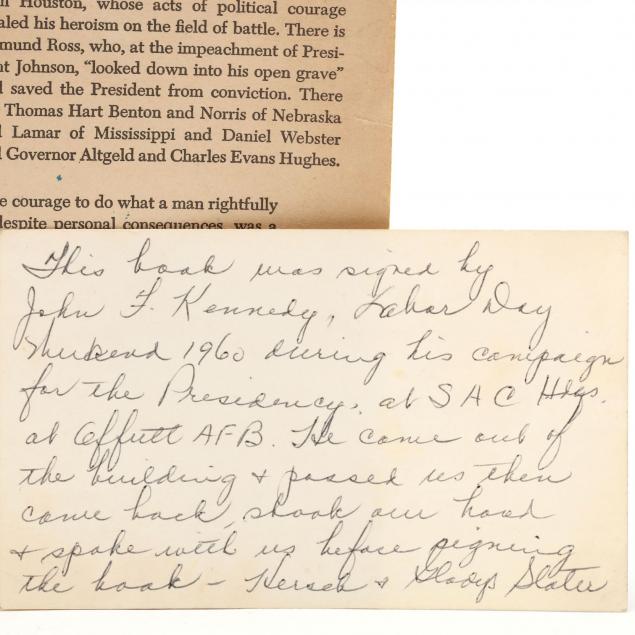 Houston, whose acts of political courage
aled his heroism on the field of battle. There is
mund Ross, who, at the impeachment of Presi-
nt Johnson, “looked down into his open grave”
d saved the President from conviction. There
Thomas Hart Benton and Norris of Nebraska
d Lamar of Mississippi and Daniel Webster
d Governor Altgeld and Charles Evans Hughes.
e courage to do what a man rightfully
despite personal consequences, was a
This book was signed by
John F. Kennedy, Labor Day
Weekend 1960 during his campaign
for the Presidency, at SAC Hdqs.
at Offutt AFB. He came out of
the building & passed us then
came back, shook our hand
& spoke with us before signing
the book - Hersch & Gladys Slater